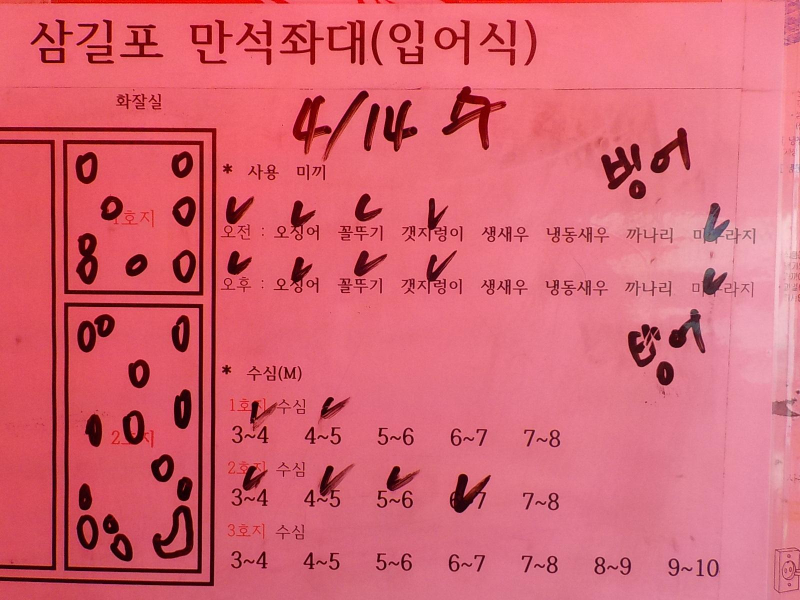 삼길포 만석좌대(입어식)
화잘실
4/14 수
* 사용 미끼
빙어
오전 : 오징어 꼴뚜기 갯지렁이 생새우 냉동새우 까나리 미꾸라지
오후 : 오징어 꼴뚜기 갯지렁이 생새우 냉동새우 까나리 미꾸라지
빙어
* 수심(M)
1호지
1호지 수심
3~4 4~5 5~6 6~7 7~8
2호지
2호지 수심
3~4 4~5 5~6 6~7 7~8
3호지 수심
3~4 4~5 5~6 6~7 7~8 8~9 9~10